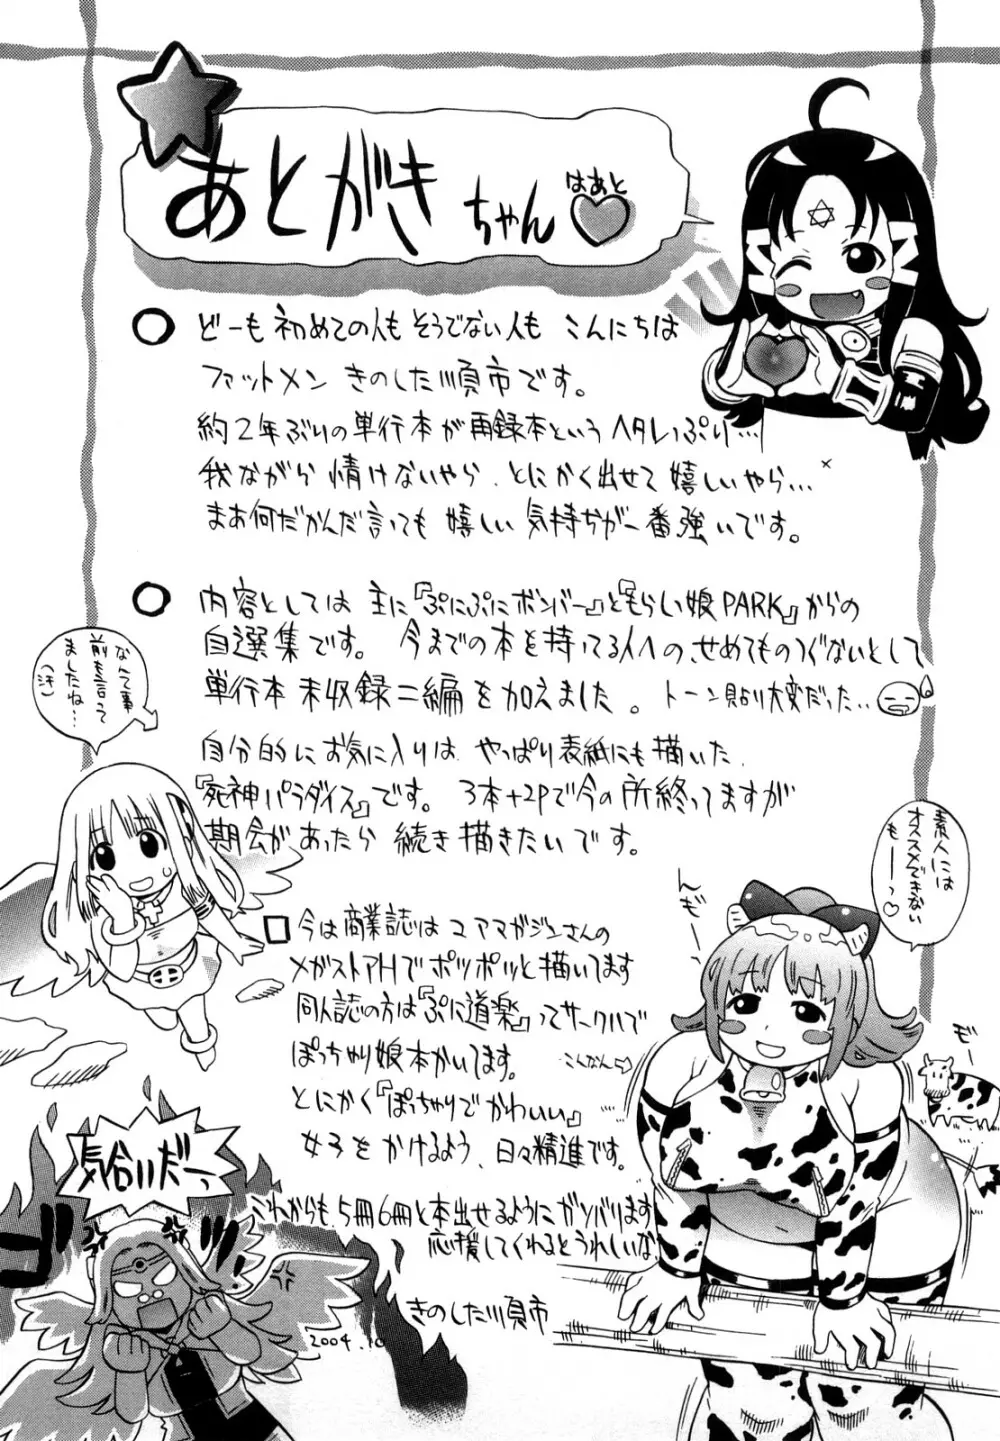 あとがきちゃん
はあと
どーも 初めての人も そうでない人も こんにちは
ファットメン きのした順市です。
約2年ぶりの単行本が再録本というヘタレっぷり…
我ながら 情けないやら、とにかく出せて嬉しいやら…
まあ何だかんだ言っても 嬉しい 気持ちが一番強いです。
内容としては 主に『ぷにぷにボンバー』と『もらい娘PARK』からの
自選集です。 今までの本を持ってる人への、せめてものつぐないとして
単行本 未収録二編 を加えました。 トーン貼り大変だった…
なんて事
前も言って
ましたね…
(汗)
自分的にお気に入りは やっぱり表紙にも描いた、
『死神パラダイス』です。 3本+2Pで今の所終ってますが
期会があったら 続き描きたいです。
素人には
オススメできない
もーっ♡
んぎー
今は商業誌は コアマガジンさんの
メガストアHで ポツポツと描いてます
同人誌の方は『ぷに道楽』ってサークルで
ぽっちゃり娘本かいてます。
こんなんら
とにかく『ぽっちゃりで かわいい』
女子を かけるよう、日々精進です。
モー
気合いだーっ
これからも 5冊6冊と本出せるようにガンバリます
応援してくれるとうれしいな。
きのした順市
2004.10